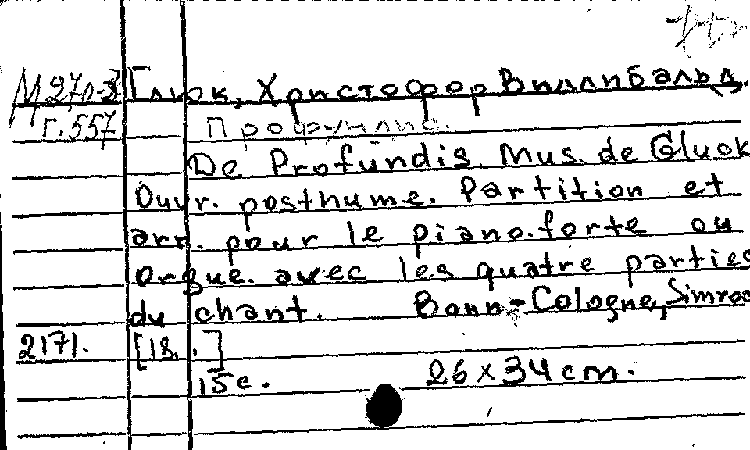 М270-3 Глюк, Христофор Виллибальд.
Г.557 Профундис.
De Profundis. Mus. de Gluck
Ouvr. posthume. Partition et
arr. pour le piano-forte ou
orgue. avec les quatre parties
du chant. Bonn-Cologne, Simroc
2171. [18. .]
15 с. 26 x 34 cm.